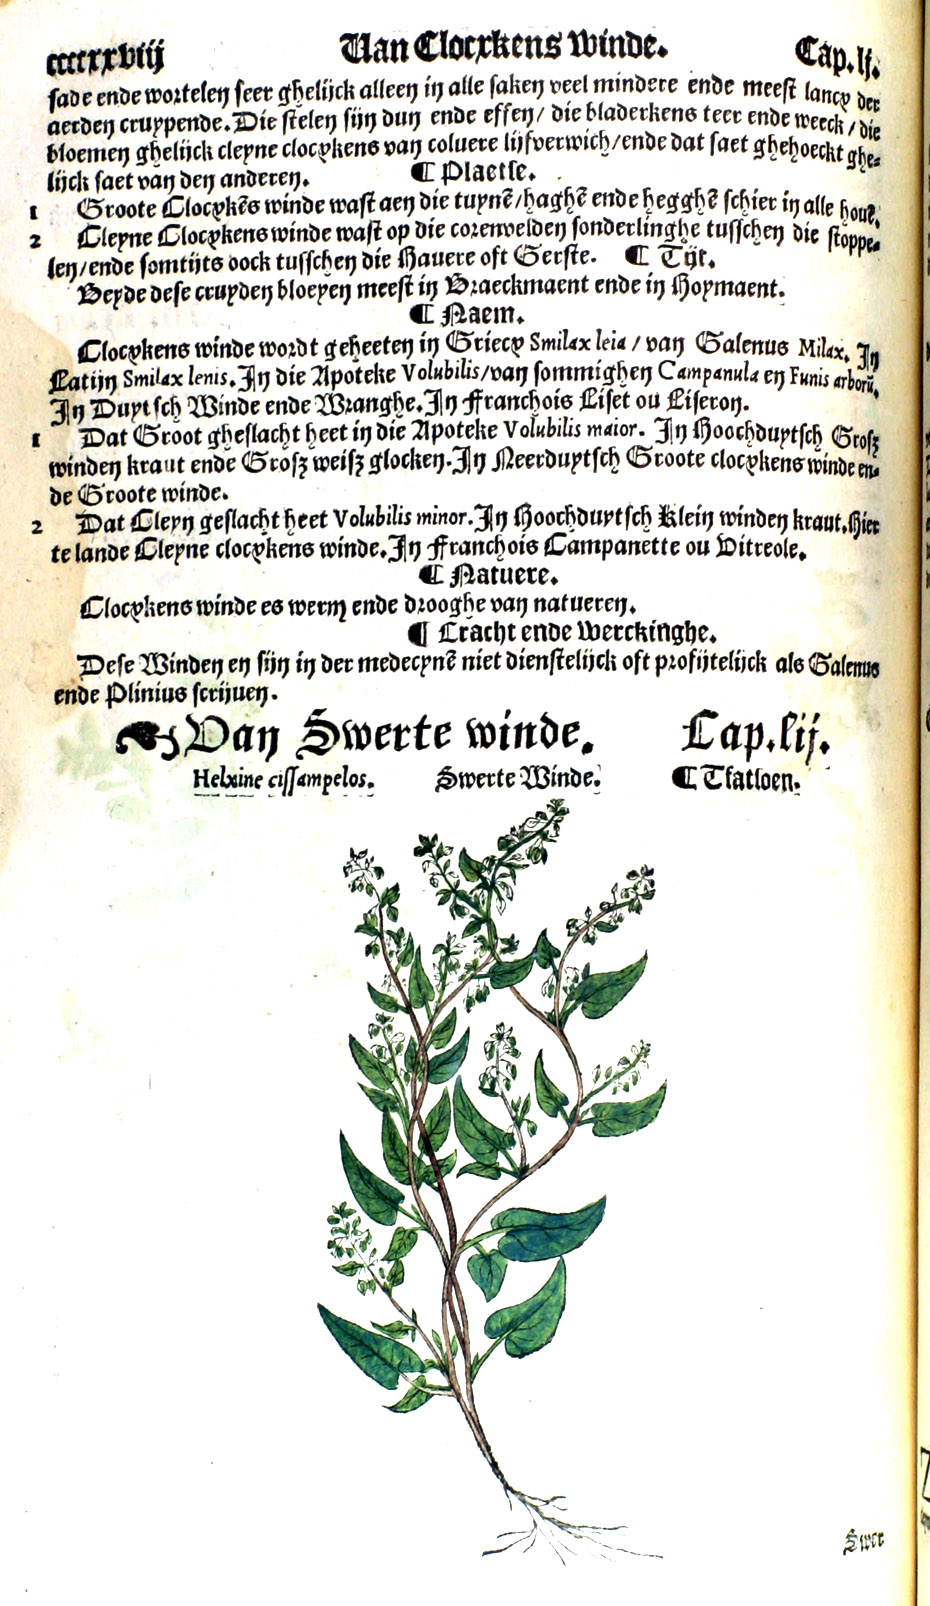 ccccxxviij Van Clocxkens winde. Cap.lj.
sade ende wortelen seer ghelijck alleen in alle saken veel mindere ende meest lancx der
aerden cruypende. Die stelen sijn dun ende effen/ die bladerkens teer ende weeck/ die
bloemen ghelijck cleyne clocxkens van coluere lijfverwich/ende dat saet ghehoeckt ghe-
lijck saet van den anderen. ¶ Plaetse.
1 Groote Clocxkēs winde wast aen die tuynē/haghē ende hegghē schier in alle hout.
2 Cleyne Clocxkens winde wast op die corenvelden sonderlinghe tusschen die stoppe-
len/ende somtijts oock tusschen die Havere oft Gerste. ¶ Tijt.
Beyde dese cruyden bloeyen meest in Braeckmaent ende in Hoymaent.
¶ Naem.
Clocxkens winde wordt geheeten in Griecx Smilax leia / van Galenus Milax. In
Latijn Smilax lenis. In die Apoteke Volubilis/van sommighen Campanula en Funis arborū.
In Duytsch Winde ende Wranghe. In Franchois Liset ou Liseron.
1 Dat Groot gheslacht heet in die Apoteke Volubilis maior. In Hoochduytsch Grosz
winden kraut ende Grosz weisz glocken. In Neerduytsch Groote clocxkens winde en-
de Groote winde.
2 Dat Cleyn geslacht heet Volubilis minor. In Hoochduytsch Klein winden kraut. Hier
te lande Cleyne clocxkens winde. In Franchois Campanette ou Vitreole.
¶ Natuere.
Clocxkens winde es werm ende drooghe van natueren.
¶ Cracht ende Werckinghe.
Dese Winden en sijn in der medecynē niet dienstelijck oft profijtelijck als Galenus
ende Plinius scrijuen.
Van Swerte winde. Cap.lij.
Helxine cissampelos. Swerte Winde. ¶ Tfatsoen.
Swer